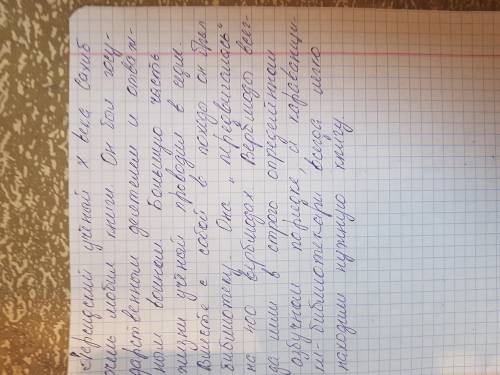 Персидский учёный X века сахиб
очень любил книги. Он был госу-
дарственном деятелем и отваж-
ным воином. Большую часть
жизни учёный проводил в седле.
Вместе с собой в поход он брал
библиотеку. Она „передвигалась"
на 400 верблюдах. Верблюды всег-
да шли в строго определённом
азбучном порядке, и караванщи-
ки-библиотекари всегда легко
находили нужную книгу